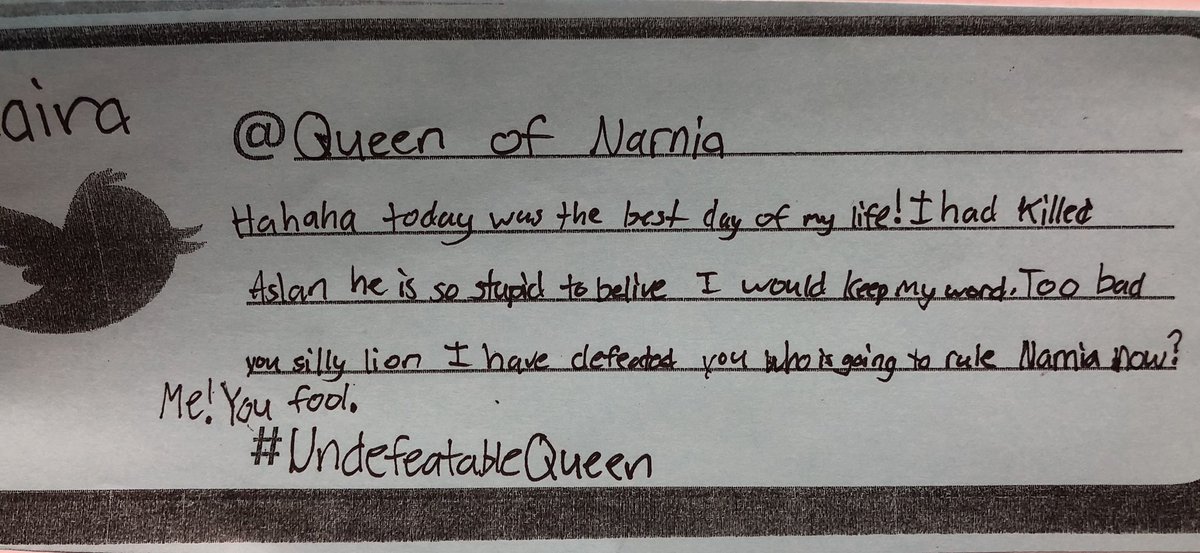 aira
@Queen of Narnia
Hahaha today was the best day of my life! I had killed
Aslan he is so stupid to belive I would keep my word. Too bad
you silly lion I have defeated you who is going to rule Narnia now?
Me! You fool.
#UndefeatableQueen